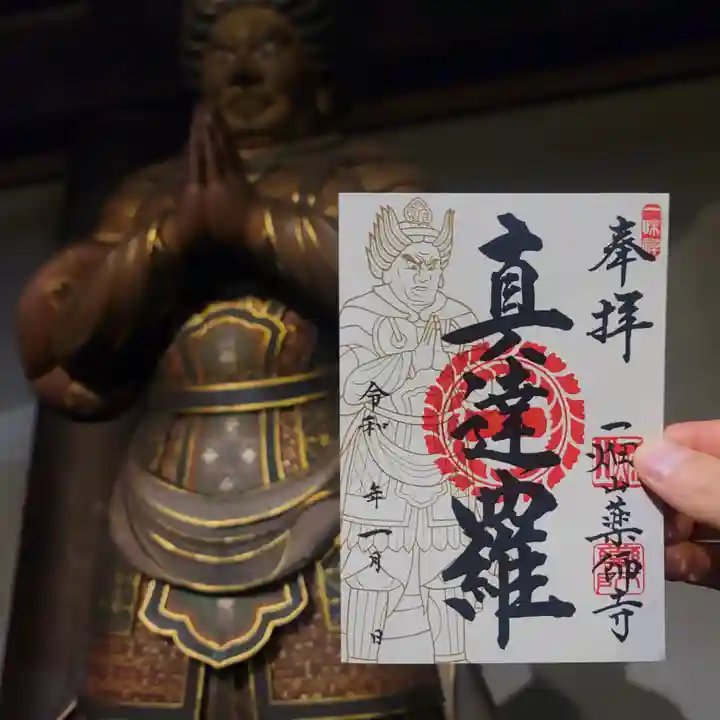 奉拝
一畑山薬師寺
真達羅
令和 年 一月 日